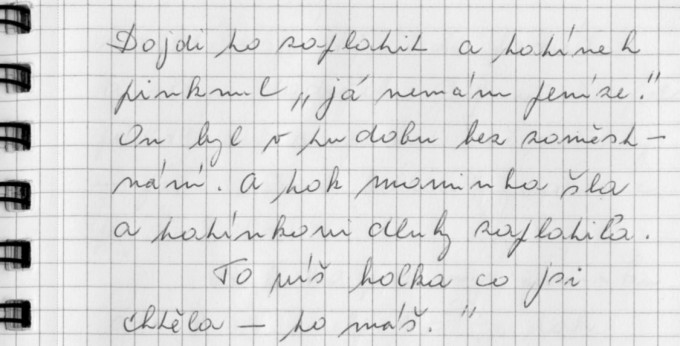 Dojdi to zaplatit a tatínek
pinknul „já nemám peníze."
On byl v tu dobu bez zaměst-
nání. A pak maminka šla
a tatínkovi dluhy zaplatila.
To víš holka co jsi
chtěla – to máš."